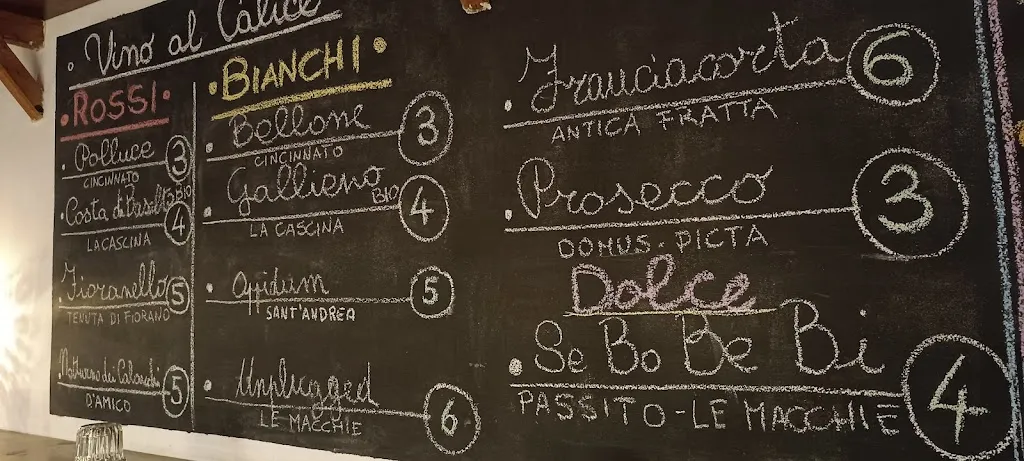 Vino al Calice
• ROSSI •
• Polluce 3
CINCINNATO
• Costa di Basalto BIO 4
LA CASCINA
• Fioranello 5
TENUTA DI FIORANO
• Notturno dei Calanchi 5
D'AMICO
• BIANCHI •
• Bellone 3
CINCINNATO
• Gallieno BIO 4
LA CASCINA
• Oppidum 5
SANT'ANDREA
• Unplugged 6
LE MACCHIE
• Franciacorta 6
ANTICA FRATTA
• Prosecco 3
DOMUS-PICTA
Dolce
• Se Bo Be Bi 4
PASSITO-LE MACCHIE